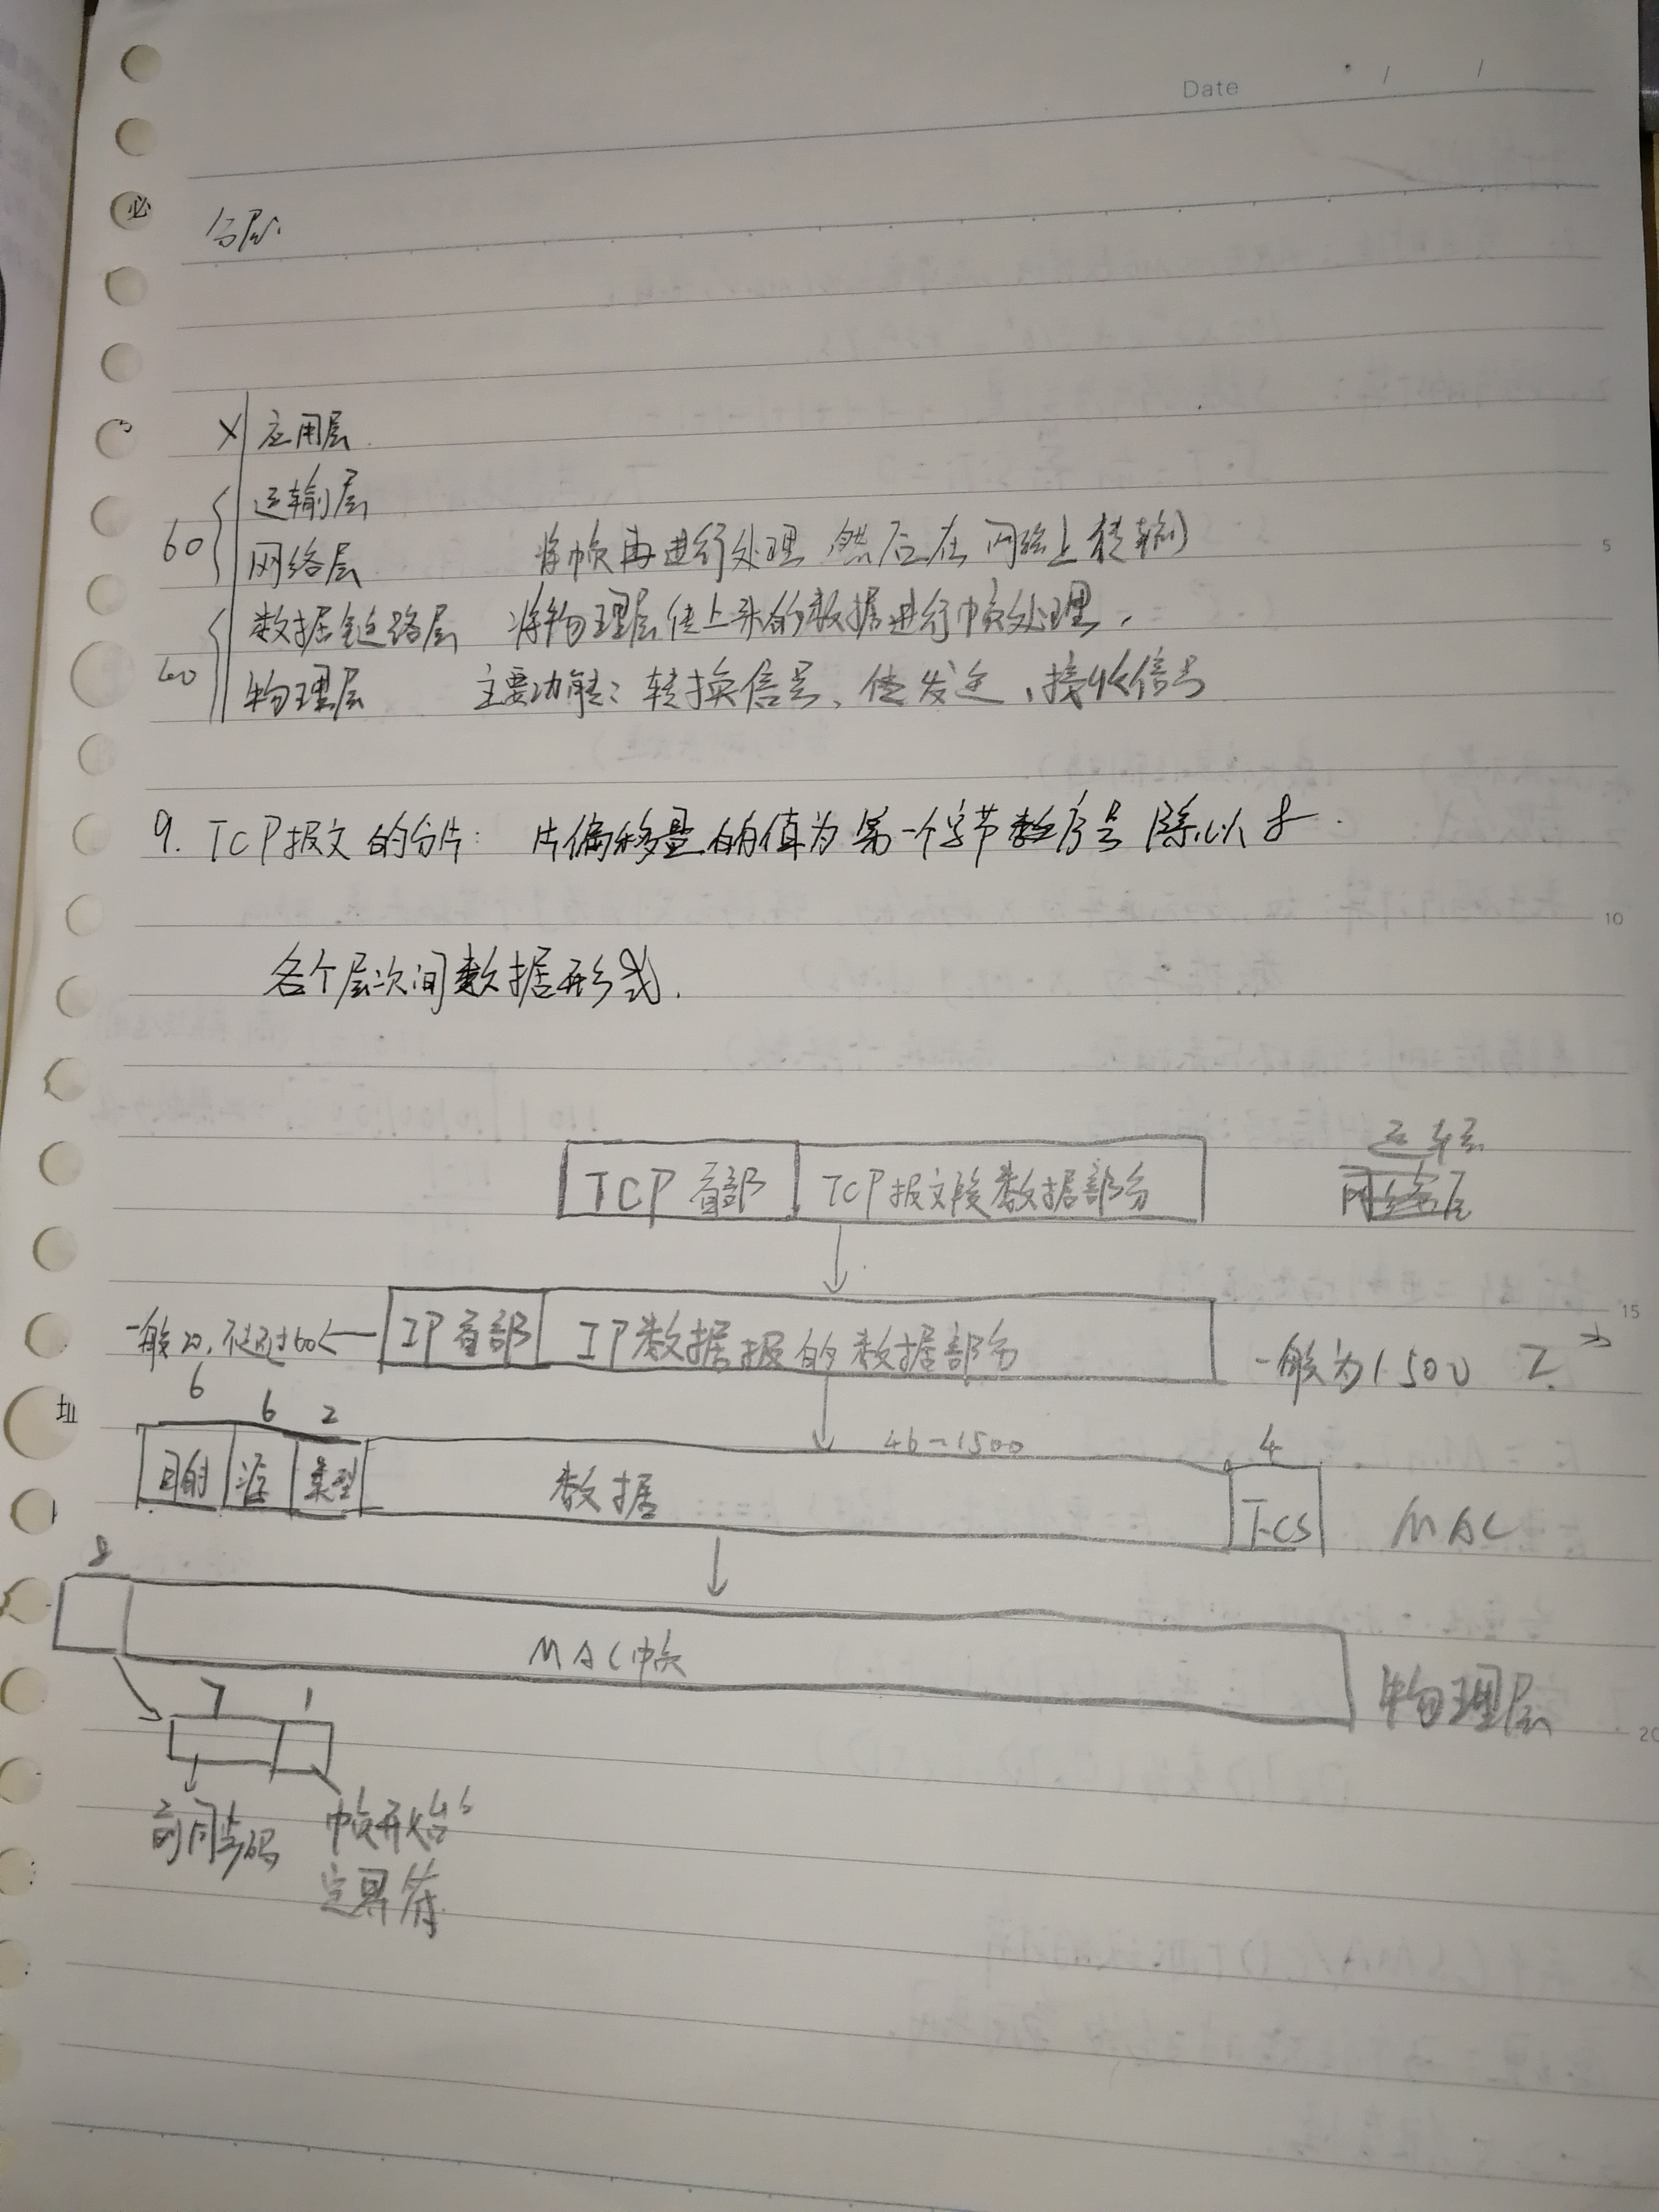 Date / /
必
分层
X 应用层
运输层
60 网络层 将帧再进行处理 然后在网络上传输
数据链路层 将物理层传上来的数据进行帧处理,
40 物理层 主要功能: 转换信号、传发送、接收信号
5
9. TCP报文的分片: 片偏移量的值为第一个字节数序号除以8.
10
各个层次间数据形式.
TCP首部 TCP报文段数据部分 运输层
网络层
15
一般20,不超过60 IP首部 IP数据报的数据部分 一般为1500
6 6 2 46~1500 4
址
目的 源 类型 数据 FCS MAC
8
MAC帧 物理层
20
7 1
前同步码 帧开始
定界符